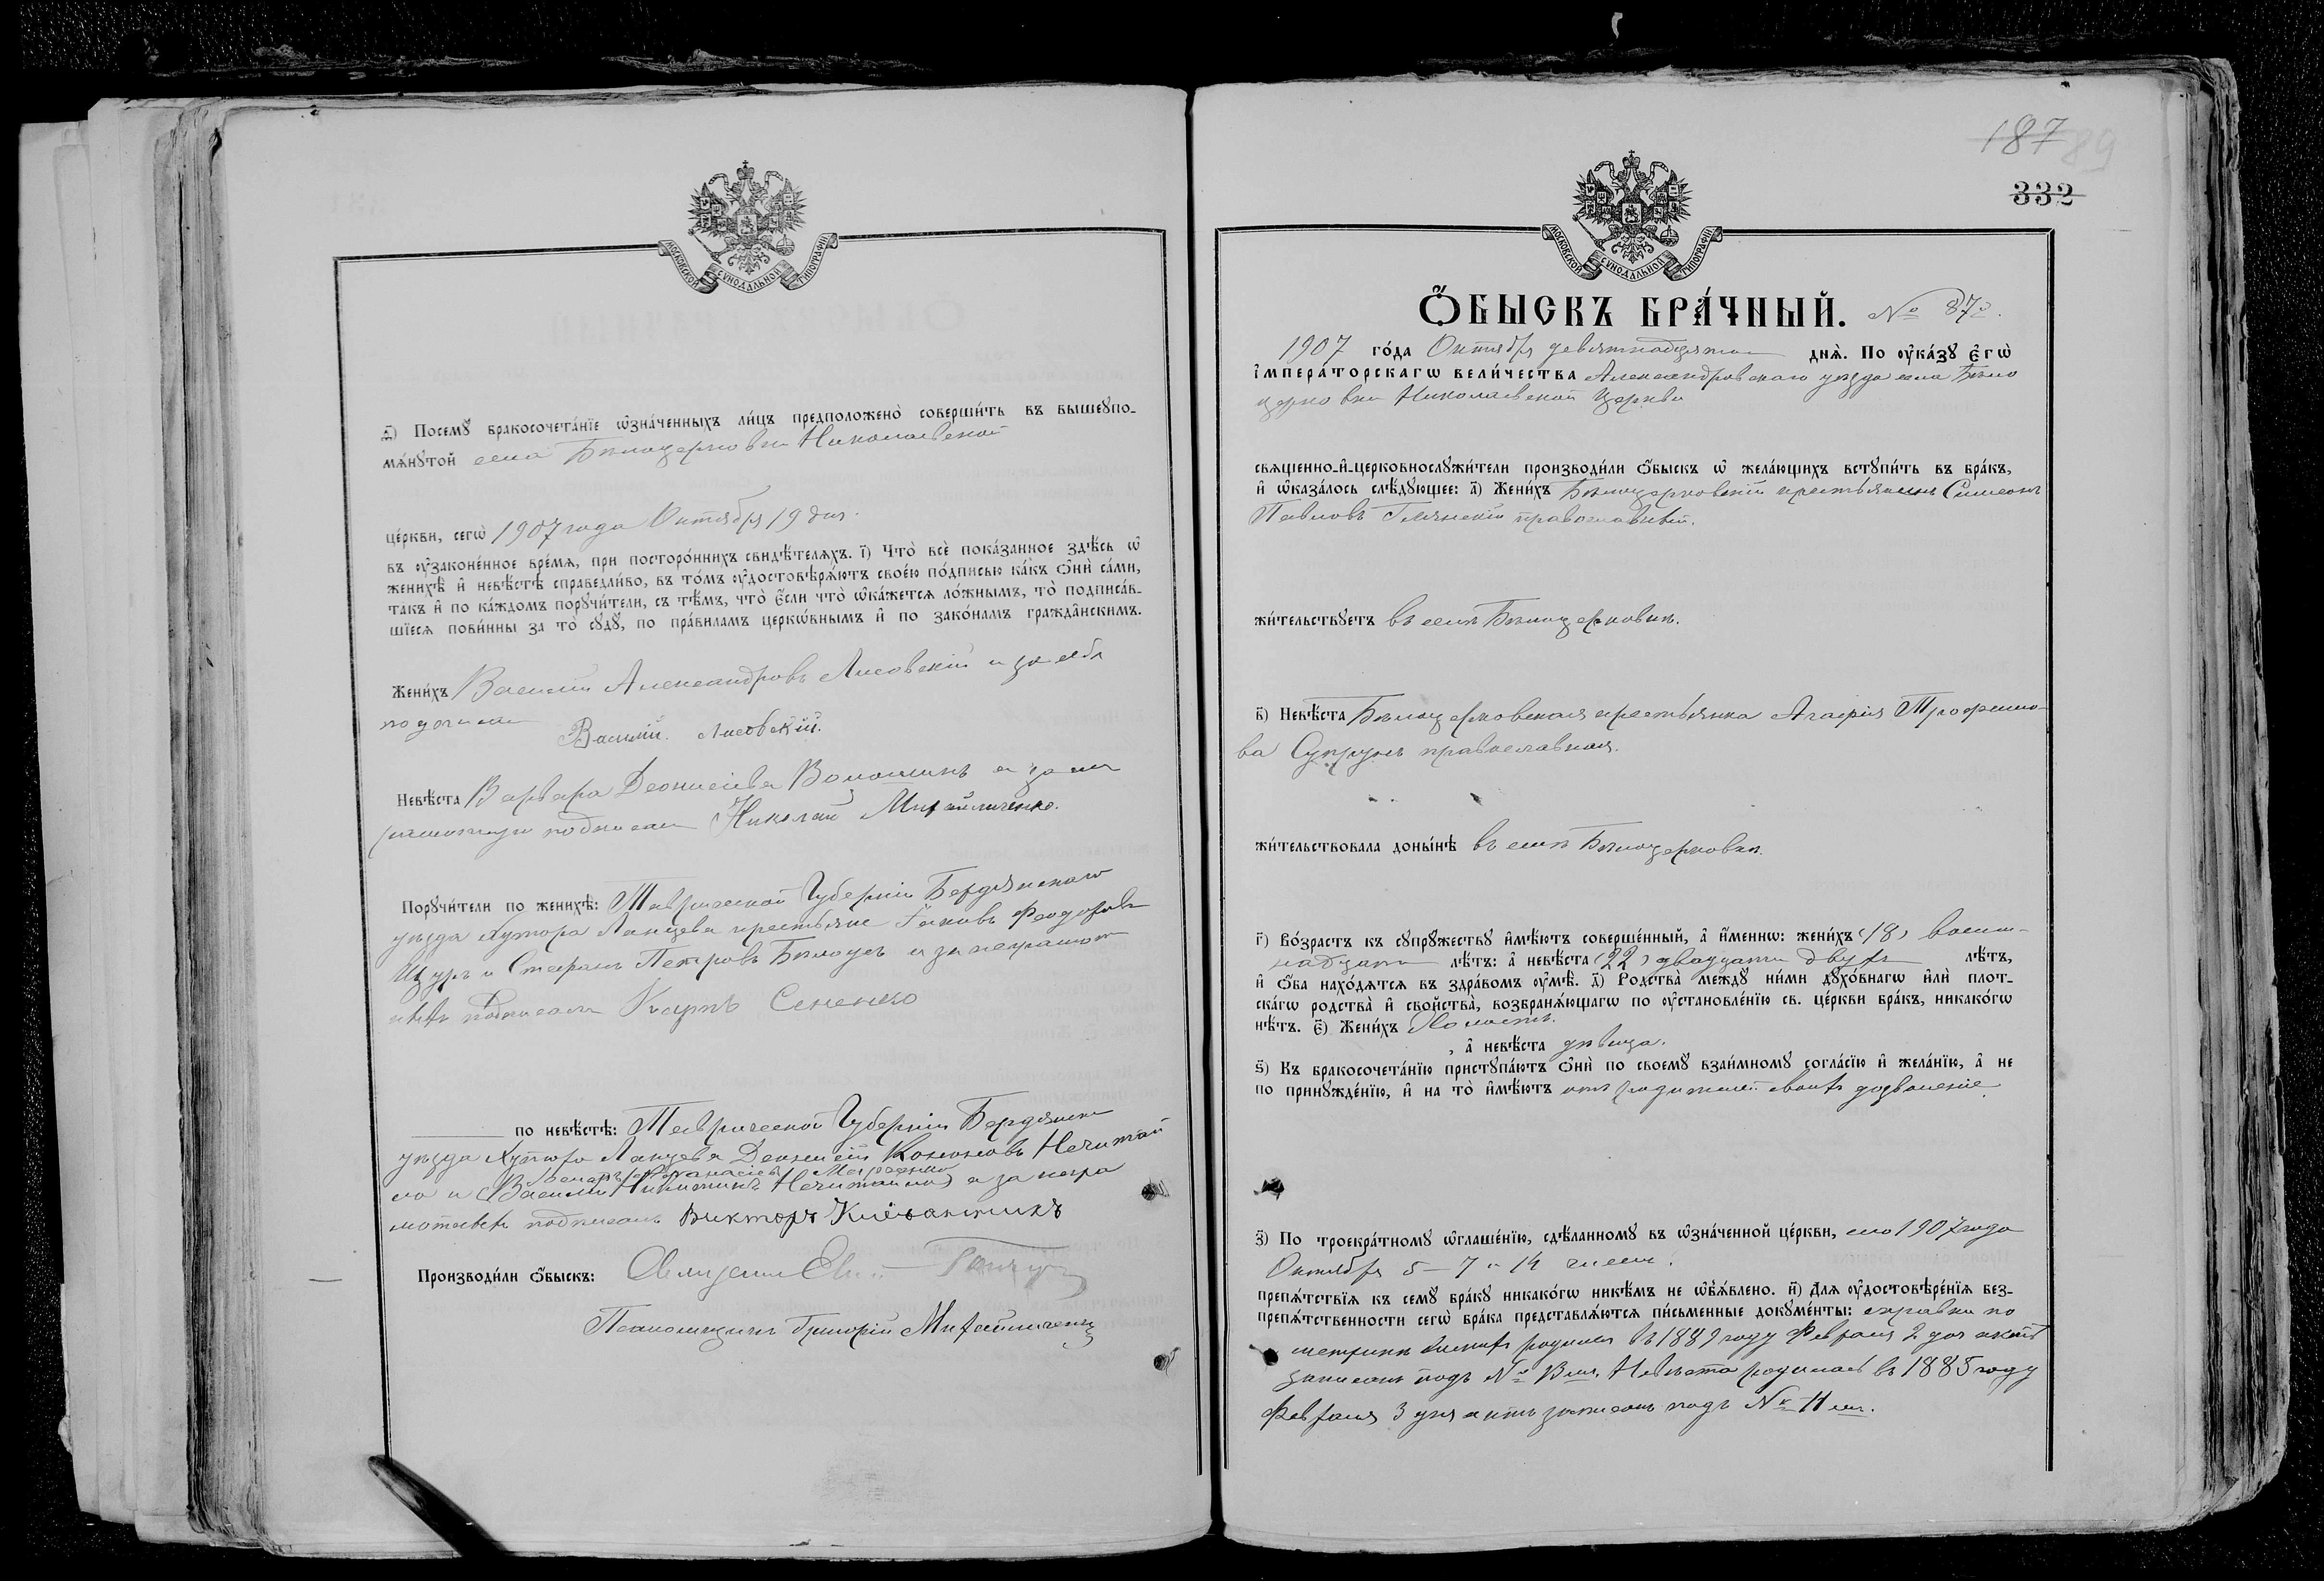 МОСКОВСКОЙ СУНОДАЛЬНОЙ ТИПОГРАФІИ
д҃) Посемꙋ бракосочета́нїе ѡ҆зна́ченныхъ ли́цъ предположено̀ соверши́ть въ вышеꙋпо-
мѧ́нꙋтой села Бѣлоцерковки Николаевской
це́ркви, сегѡ̀ 1907 года Октября 19 дня.
въ ᲂу҆законе́нное вре́мѧ, при посторо́ннихъ свидѣ́телѧхъ. і҃) Что̀ всѐ пока́занное здѣ́сь ѡ҆
женихѣ̀ и҆ невѣ́стѣ справедли́во, въ то́мъ ᲂу҆достовѣрѧ́ютъ свое́ю по́дписью ка́къ ѻ҆нѝ са́ми,
такъ и҆ по ка́ждомъ порꙋчи́тели, съ тѣ́мъ, что̀ є҆́сли что̀ ѡ҆ка́жетсѧ ло́жнымъ, то̀ подписа́в-
шїесѧ пови́нны за то̀ сꙋдꙋ̀, по пра́виламъ церкѡ́внымъ и҆ по зако́намъ гражда̑нскимъ.
Жени́хъ Василій Александровъ Лисовскій и за себя
подписал
Василій. Лисовскій.
Невѣ́ста Варвара Деонисіева Волошинъ а за не
грамотную подписал Николай Михайличенко.
Порꙋчи́тели по женихѣ̀: Таврической Губерніи Бердянскаго
уѣзда Хутора Ланцева крестьяне Іаковъ Феодоровъ
Щуръ и Стефанъ Петровъ Бѣлоусъ и за неграмот
ныхъ подписалъ Карпъ Сененко
по невѣ́стѣ: Таврической Губерніи Бердянска
уѣзда Хутора Ланцева Деонисій Кононовъ Нечитай
Афанасіевъ
ло и (Василій Никитинъ Нечитайло) а за негра
мотныхъ подписалъ Викторъ
Производи́ли ѻ҆́быскъ:
Псаломщикъ Григорій Михайличенко
187 89
332
МОСКОВСКОЙ СУНОДАЛЬНОЙ ТИПОГРАФІИ
Ѻ҆́БЫСКЪ БРА́ЧНЫЙ. № 87й.
1907 го́да Октября девятнадцатаго днѧ̀. По ᲂу҆ка́зꙋ є҆гѡ̀
і҆мпера́торскагѡ вели́чества Александровскаго уѣзда села Бѣло
церковки Николаевской Церкви
свѧще́нно-и҆-церковнослꙋжи́тели производи́ли ѻ҆́быскъ ѡ҆ жела́ющихъ встꙋпи́ть въ бра́къ,
и҆ ѡ҆каза́лось слѣ́дꙋющее: а҃) Жени́хъ Бѣлоцерковскій крестьянинъ Симеонъ
Павловъ Глянскій православный.
жи́тельствꙋетъ въ селѣ Бѣлоцерковкѣ.
в҃) Невѣ́ста Бѣлоцерковская крестьянка Агафія Трофимо-
ва Супрунъ православная.
жи́тельствовала доны́нѣ въ селѣ Бѣлоцерковкѣ.
г҃) Во́зрастъ къ сꙋпрꙋ́жествꙋ и҆мѣ́ютъ соверше́нный, а҆ и҆́менно: жени́хъ (18) восем-
надцати лѣ́тъ: а҆ невѣ́ста (22) двадцати двухъ лѣ́тъ,
и҆ ѻ҆́ба нахо́дѧтсѧ въ здра́вомъ ᲂу҆мѣ̀. д҃) Родства̀ междꙋ̀ ни́ми дꙋхо́внагѡ и҆лѝ плот-
ска́гѡ родства̀ и҆ свойства̀, возбранѧ́ющагѡ по ᲂу҆становле́нїю св. це́ркви бра́къ, никако́гѡ
нѣ́тъ. є҃) Жени́хъ Холостъ.
, а҆ невѣ́ста дѣвица.
ѕ҃) Къ бракосочета́нїю пристꙋпа́ютъ ѻ҆нѝ по своемꙋ̀ взаи́мномꙋ согла́сїю и҆ жела́нїю, а҆ не
по принꙋжде́нїю, и҆ на то̀ и҆мѣ́ютъ отъ родителей своихъ дозволеніе.
з҃) По троекра́тномꙋ ѡ҆глаше́нїю, сдѣ́ланномꙋ въ ѡ҆зна́ченной це́ркви, сего 1907 года
Октября 5 - 7 и 14 чисел.
препѧ́тствїѧ къ семꙋ̀ бра́кꙋ никако́гѡ никѣ́мъ не ѡ҆б̾ѧ́влено. и҃) Длѧ ᲂу҆достовѣре́нїѧ без-
препѧ́тственности сегѡ̀ бра́ка представлѧ́ютсѧ пи́сьменные докꙋме́нты: справки по
метрикѣ Женихъ родился въ 1889 году Февраля 2 дня актъ
записанъ подъ № Невѣста родилась въ 1885 году
Февраля 3 дня актъ записанъ подъ № 11 мъ.